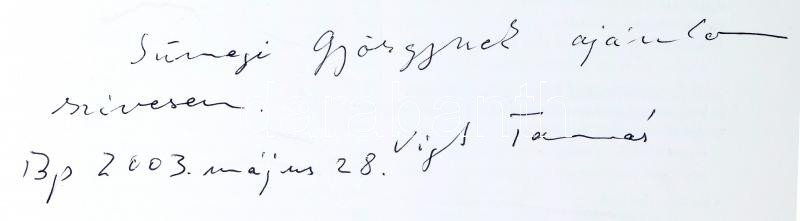 Sümegi Györgynek ajánlom
szivesen.
Bp 2003. május 28. Vigh Tamás